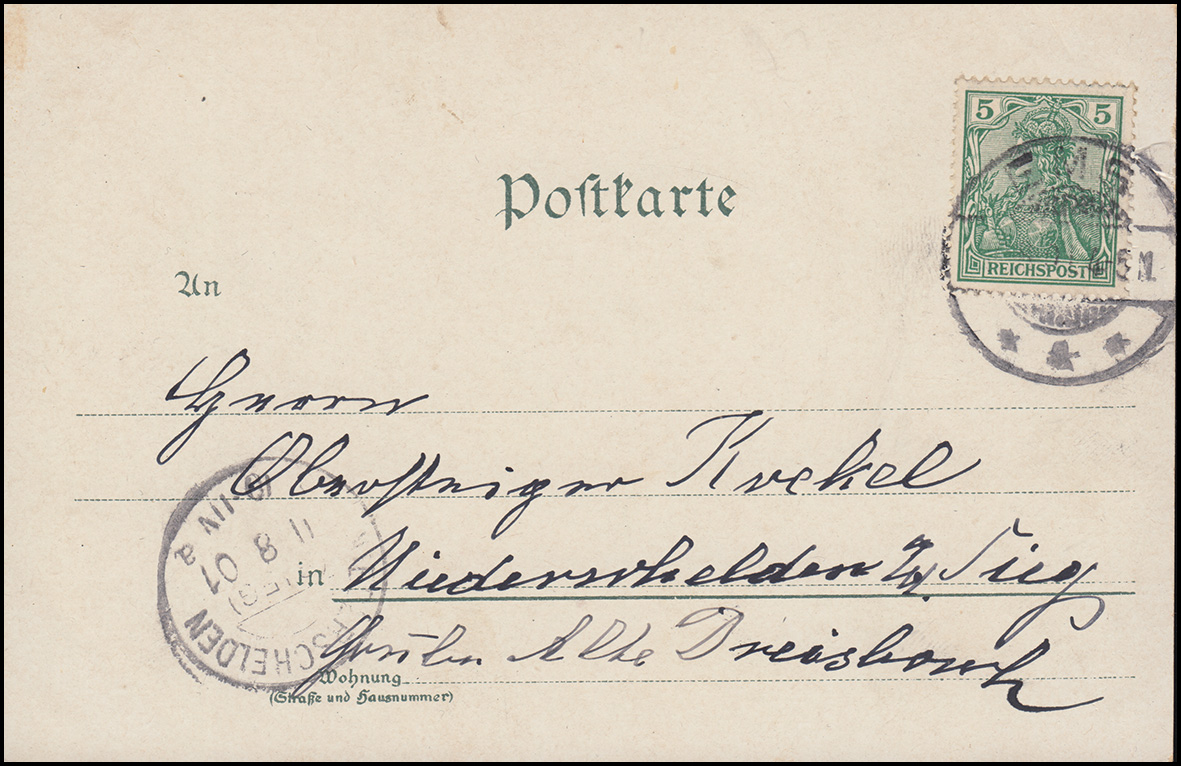 5 5
REICHSPOST
Postkarte
An
Herrn
Obersteiger Krekel
in Niederschelden a/ Sieg
Grube Alte Dreisbach
Wohnung
(Straße und Hausnummer)
SCHELDEN
11 8 07